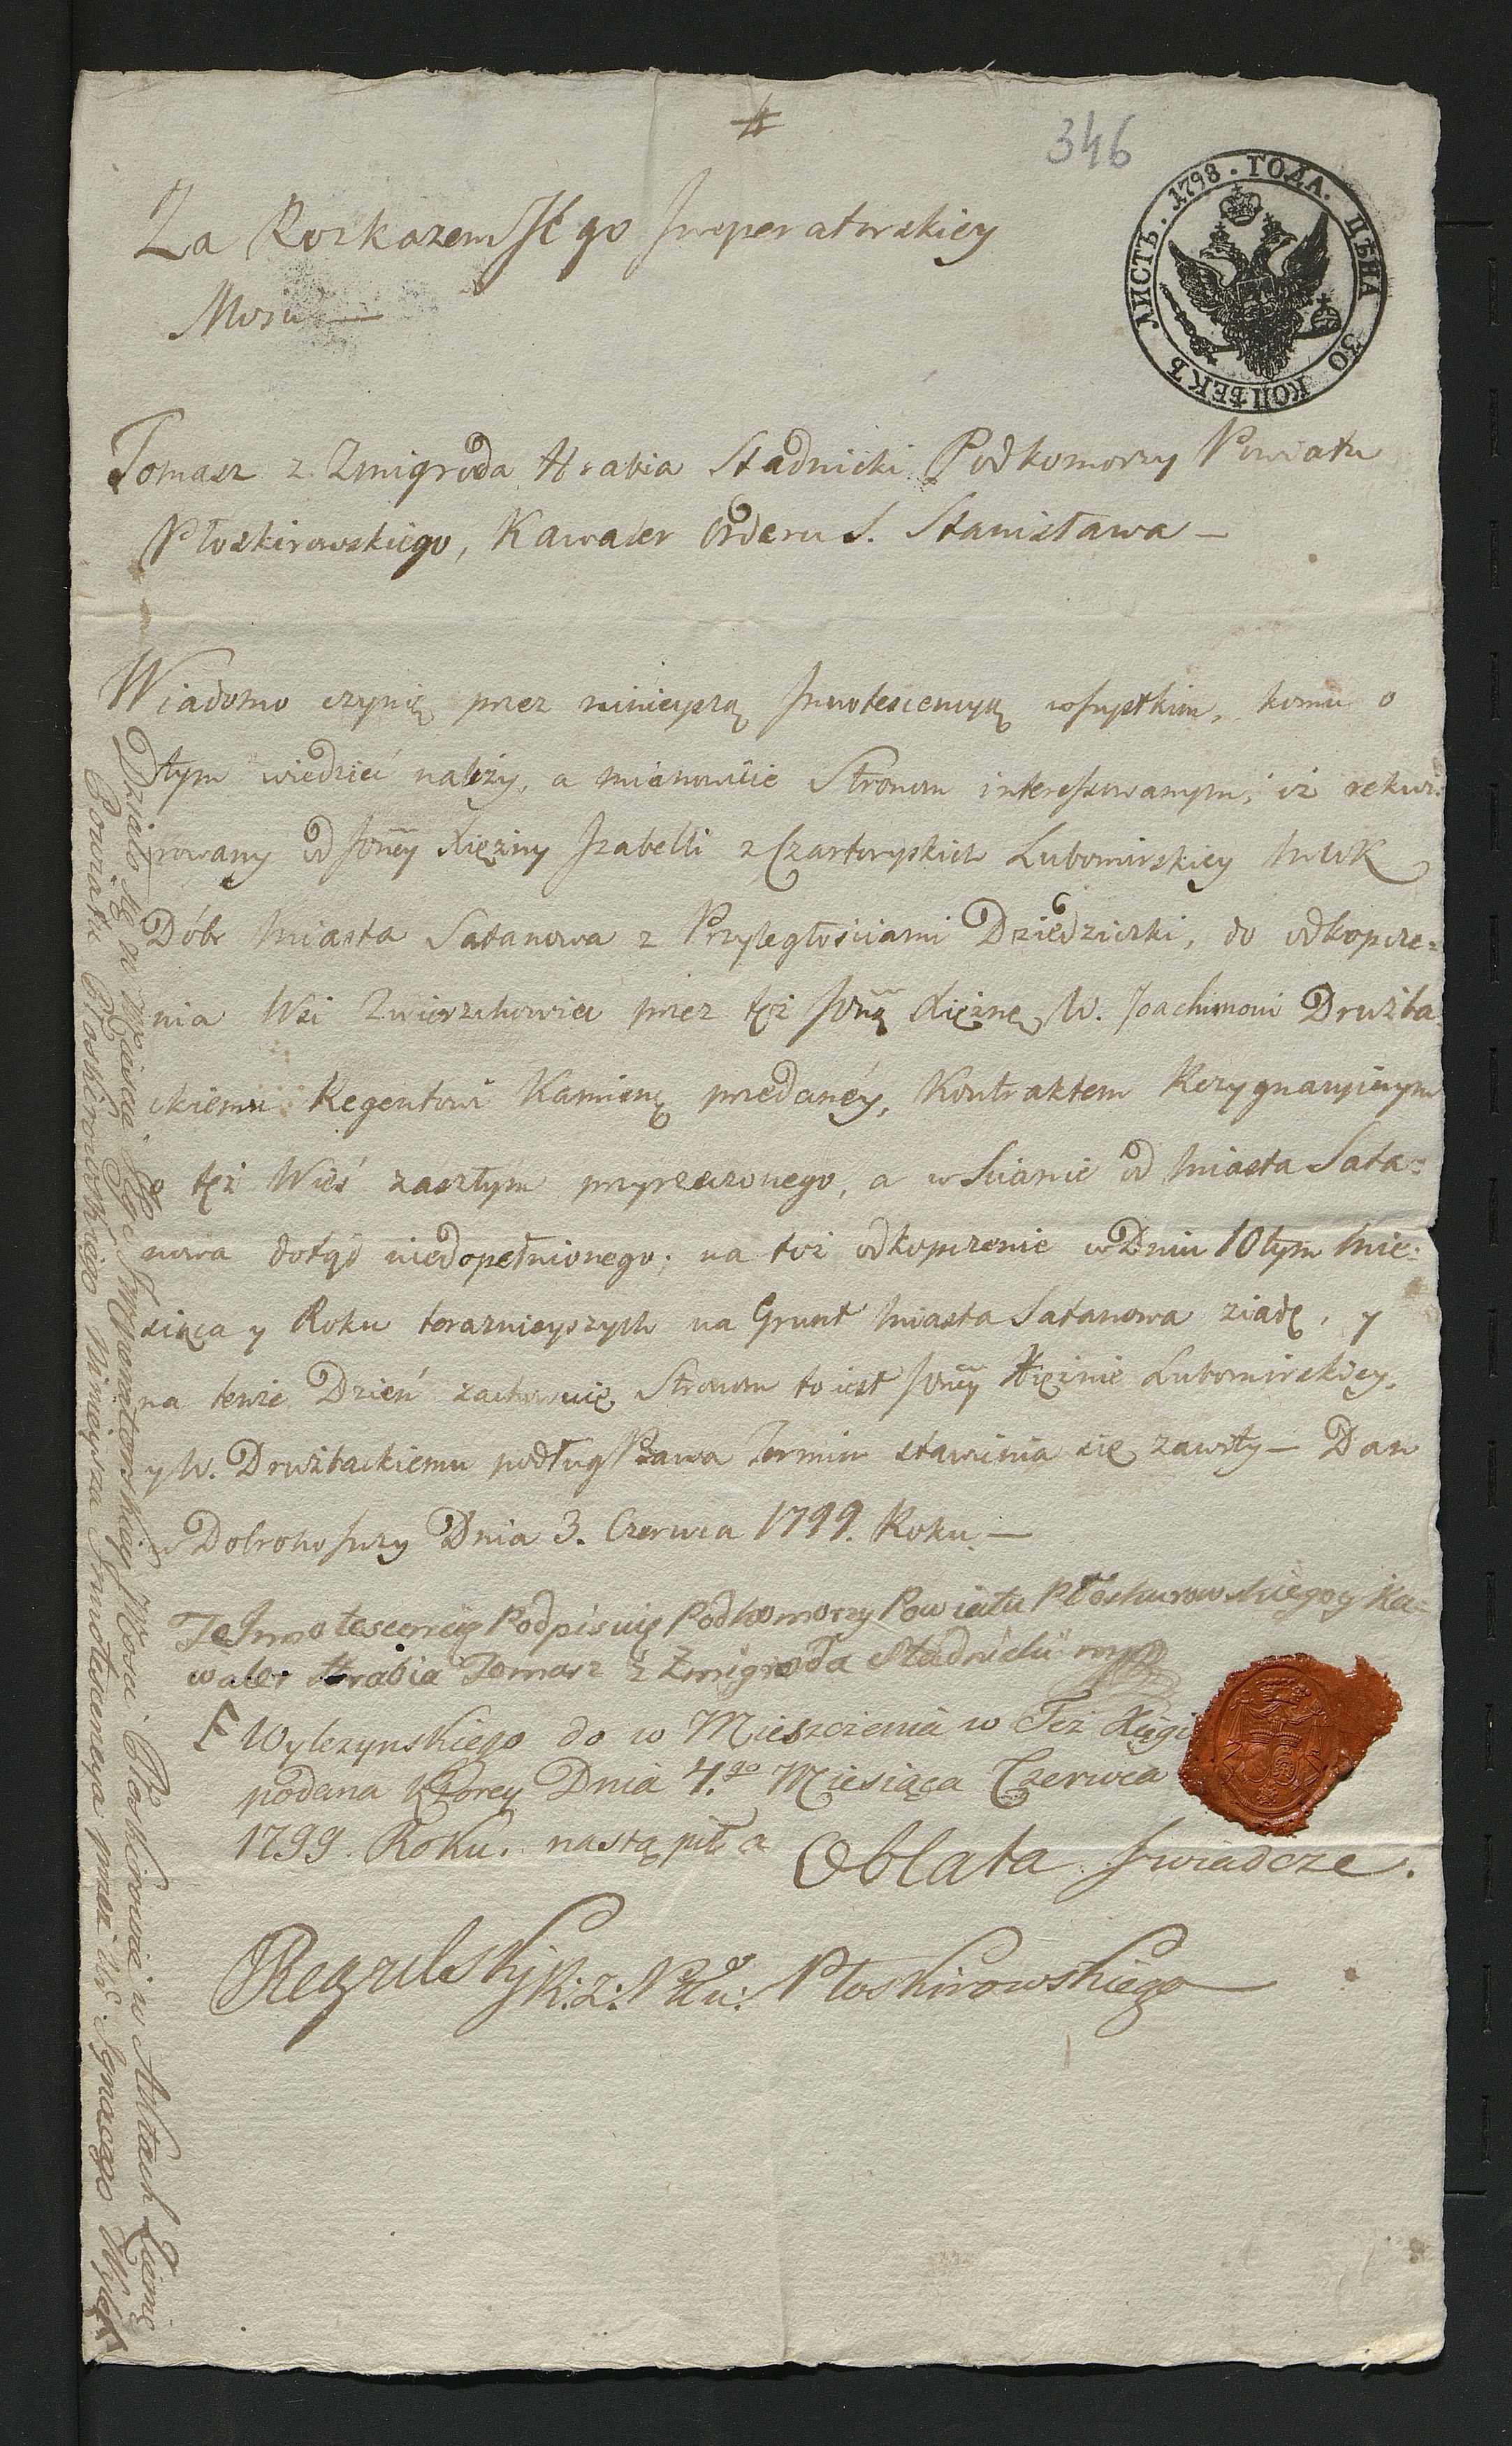 #
346
ЛИСТЪ. 1798. ГОДА. ЦѢНА 30 КОПѢЕКЪ
Za Rozkazem JE go Imperatorskiey
Mosci —
Tomasz z Zmigroda Hrabia Stadnicki Podkomorzy Powiatu
Płoskirowskiego, Kawaler Orderu S. Stanisława —
Wiadomo czynię przez ninieyszą Innotescencyą wszystkim, komu o
tym wiedzieć należy, a mianowicie Stronom interessowanym, iż rekwi:
rowany od JOney Xiężny Izabelli z Czartoryskich Lubomirskiey MWK
Dóbr Miasta Satanowa z Przyległościami Dziedziczki, do odkopcze=
nia Wsi Zwierzchowiec przez tęż JOną Xiężnę W. Joachimowi Druzba
ckiemu Regentowi Kamienę przedanéy, Kontraktem Rezygnacyinym
o tęż Wieś zaszłym przyrzeczonego, a w Scianie od Miasta Sata=
nowa dotąd niedopełnionego; na toż odkopczenie w Dniu 10tym Mie:
siąca y Roku teraznieyszych na Grunt Miasta Satanowa ziadę, y
na tenże Dzień zachowuię Stronom to iest JOney Xiężnie Lubomirskiey,
y W. Druzbackiemu podług Prawa Termin stawienia się zawity — Dan
w Dobrohoszczy Dnia 3. Czerwca 1799. Roku —
Te Innotescencyę Podpisuię Podkomorzy Powiatu Płoskurowskiego y Ka=
waler Hrabia Tomasz z Zmigroda Stadnicki mp
F Wylezynskiego do w Mieszczenia w Też Xięgi
podana Ktorey Dnia 7.go Miesiąca Czerwca
1799. Roku. nastąpiła Oblata swiadcze.
Regulski R: Z: Pttu: Płoskirowskiego
Działo się w Mieście Jego Imperatorskiey Mosci Płoskirowie w Aktach Ziemś
Powiatu Płoskirowskiego Ninieysza Innotescencya przez Ur. Ignacego Wyle F